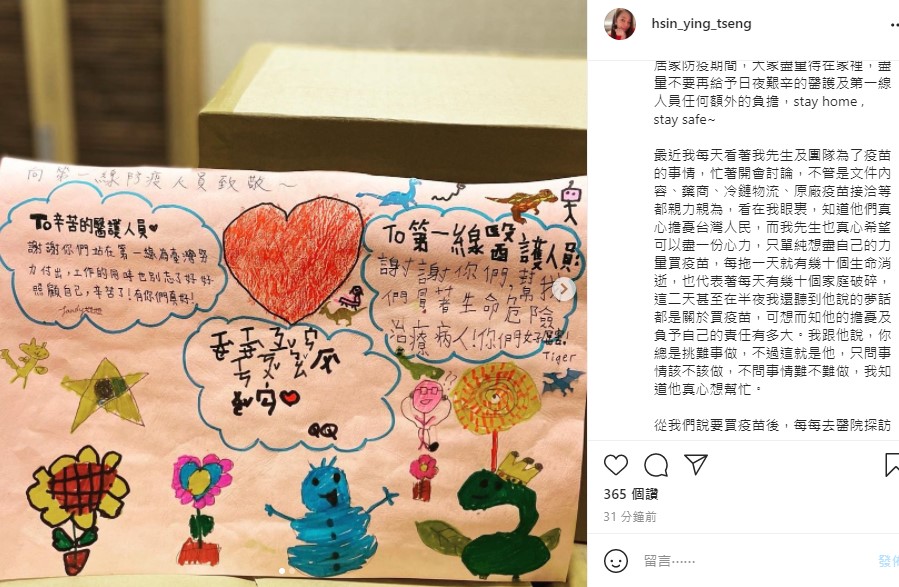 向第一線防疫人員致敬~
To辛苦的醫護人員
謝謝你們站在第一線為臺灣努
力付出,工作的同時也別忘了好好
照顧自己,辛苦了!有你們真好!
To第一線醫護人員:
謝謝你們,幫我
們冒著生命危險
治療病人!你們好厲害!
Tiger
QQ
hsin_ying_tseng
居家防疫期間,大家盡量待在家裡,盡
量不要再給予日夜艱辛的醫護及第一線
人員任何額外的負擔,stay home ,
stay safe~
最近我每天看著我先生及團隊為了疫苗
的事情,忙著開會討論,不管是文件內
容、藥商、冷鏈物流、原廠疫苗接洽等
都親力親為,看在我眼裏,知道他們真
心擔憂台灣人民,而我先生也真心希望
可以盡一份心力,只單純想盡自己的力
量買疫苗,每拖一天就有幾十個生命消
逝,也代表著每天有幾十個家庭破碎,
這二天甚至在半夜我還聽到他說的夢話
都是關於買疫苗,可想而知他的擔憂及
負予自己的責任有多大。我跟他說,你
總是挑難事做,不過這就是他,只問事
情該不該做,不問事情難不難做,我知
道他真心想幫忙。
從我們說要買疫苗後,每每去醫院探訪
365 個讚
31 分鐘前
留言⋯⋯